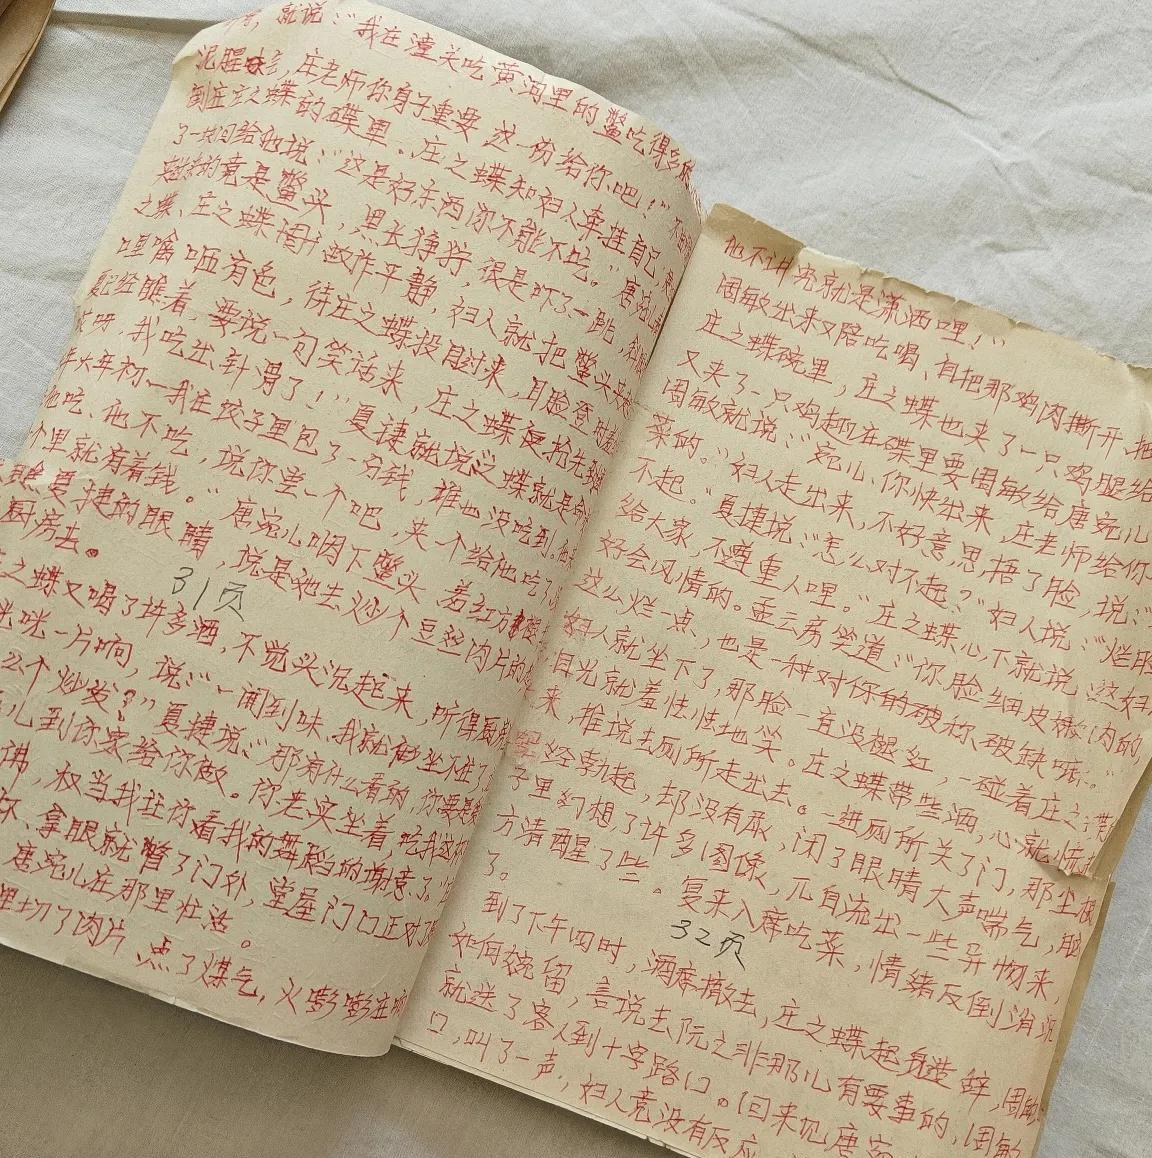 就说:"我在潼关吃黄河里的鳖吃得多
泥腥味多,庄老师你身子重要 这一份给你吧!"
倒在庄之蝶的碟里。庄之蝶知妇人牵连自己
给他说:"这是好东西你不能不吃。"唐宛儿
竟是鳖头,黑长狰狞,很是吓了一跳
之蝶、庄之蝶 故作平静,妇人就把鳖头夹
口里噙咂有色,待庄之蝶投目过来,目脸登
已经瞧着,要说一句笑话来,庄之蝶便抢先
呀,我吃出针骨了!"夏捷就说:"之蝶就是
年大年初一我在饺子里包了一分钱,谁也没吃到。
吃、他不吃,说你尝一个吧,夹一个给他吃了
个里就有着钱。"唐宛儿咽下鳖头 羞红
夏捷的眼睛,说是她去炒个豆丝肉片的
厨房去。
31页
之蝶又喝了许多酒,不觉头沉起来,听得厨
一片响,说:"一闻到味,我就 坐不住了
么个炒法?"夏捷说:"那有什么看的,你要是
儿到你家给你做。你老实坐着,吃我这
权当我让你看我的舞蹈的谢意了。"
拿眼就瞥了门外,堂屋门口正对了
唐宛儿在那里忙活。
里切了肉片 点了煤气,火嘭嘭在响
他不讲究就是潇洒哩!"
周敏出来又陪吃喝、自把那鸡肉撕开 把
庄之蝶碗里,庄之蝶也夹了一只鸡腿给
又夹了一只鸡翅在碟里要周敏给唐宛儿
周敏就说:"宛儿、你快出来,庄老师给你
菜的。"妇人走出来,不好意思捂了脸,说:"
不起。"夏捷说:"怎么对不起?"妇人说:"烂脏
给大家,不尊重人哩。"庄之蝶心下就说:这妇
好会风情的。孟云房笑道:"你脸细皮嫩肉的
这么烂一点,也是一种对你的破称、破缺呢:"
妇人就坐下了,那脸一直没褪红,一碰着庄之蝶
目光就羞怯怯地笑。庄之蝶带些酒,心就慌
来,推说去厕所走出去。一进厕所关了门,那尘根
经勃起,却没有尿,闭了眼睛大声喘气,脑
子里幻想了许多图像,兀自流出一些异物来,
方清醒了些。复来入席吃菜,情绪反倒消沉
了。
32页
到了下午四时,酒席撤去,庄之蝶起身告辞,周敏
如何挽留,言说去阮之非那儿有要事的,周敏
就送了客人到十字路口。回来见唐宛
口,叫了一声,妇人竟没有反应